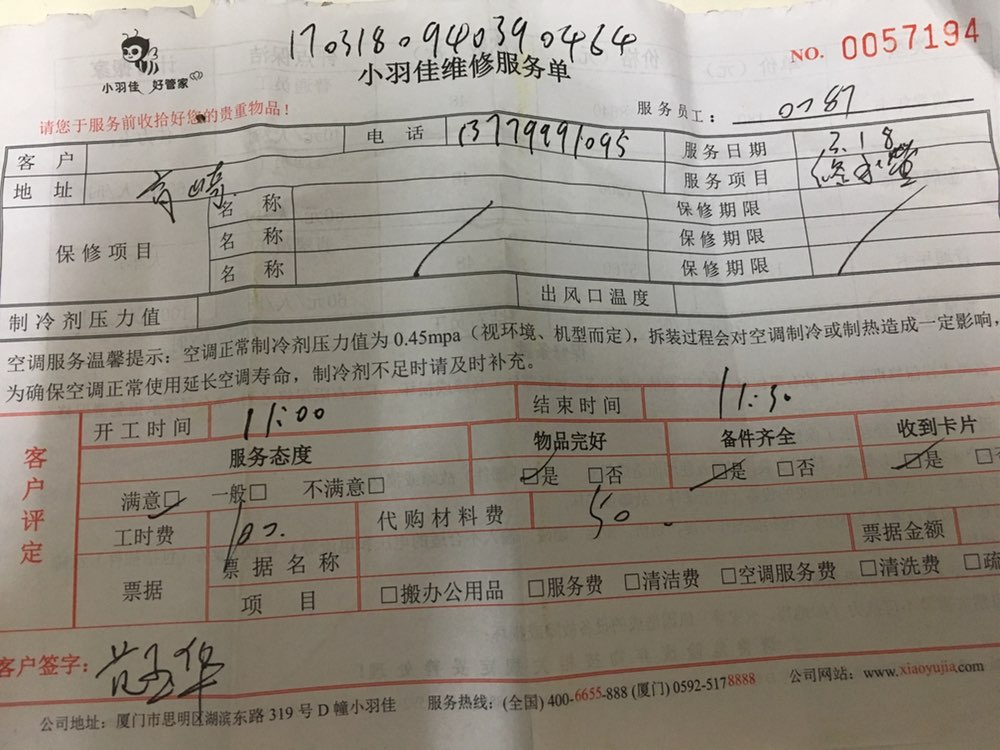 1703180940390464
小羽佳 好管家
小羽佳维修服务单
NO. 0057194
请您于服务前收拾好您的贵重物品！
服务员工： 0787
客户 电话 13779991095 服务日期 3.18
地址 服务项目 修水管
保修项目 名称 保修期限
名称 保修期限
名称 保修期限
制冷剂压力值 出风口温度
空调服务温馨提示：空调正常制冷剂压力值为 0.45mpa（视环境、机型而定），拆装过程会对空调制冷或制热造成一定影响，
为确保空调正常使用延长空调寿命，制冷剂不足时请及时补充。
客户评定
开工时间 11:00 结束时间 11:30
服务态度 物品完好 备件齐全 收到卡片
满意□ 一般□ 不满意□ □是 □否 □是 □否 □是 □
工时费 代购材料费 50 票据金额
票据 票据名称
项目 □搬办公用品 □服务费 □清洁费 □空调服务费 □清洗费 □疏
客户签字：
公司地址：厦门市思明区湖滨东路 319 号 D 幢小羽佳 服务热线：(全国) 400-6655-888 (厦门) 0592-5178888 公司网站：www.xiaoyujia.com